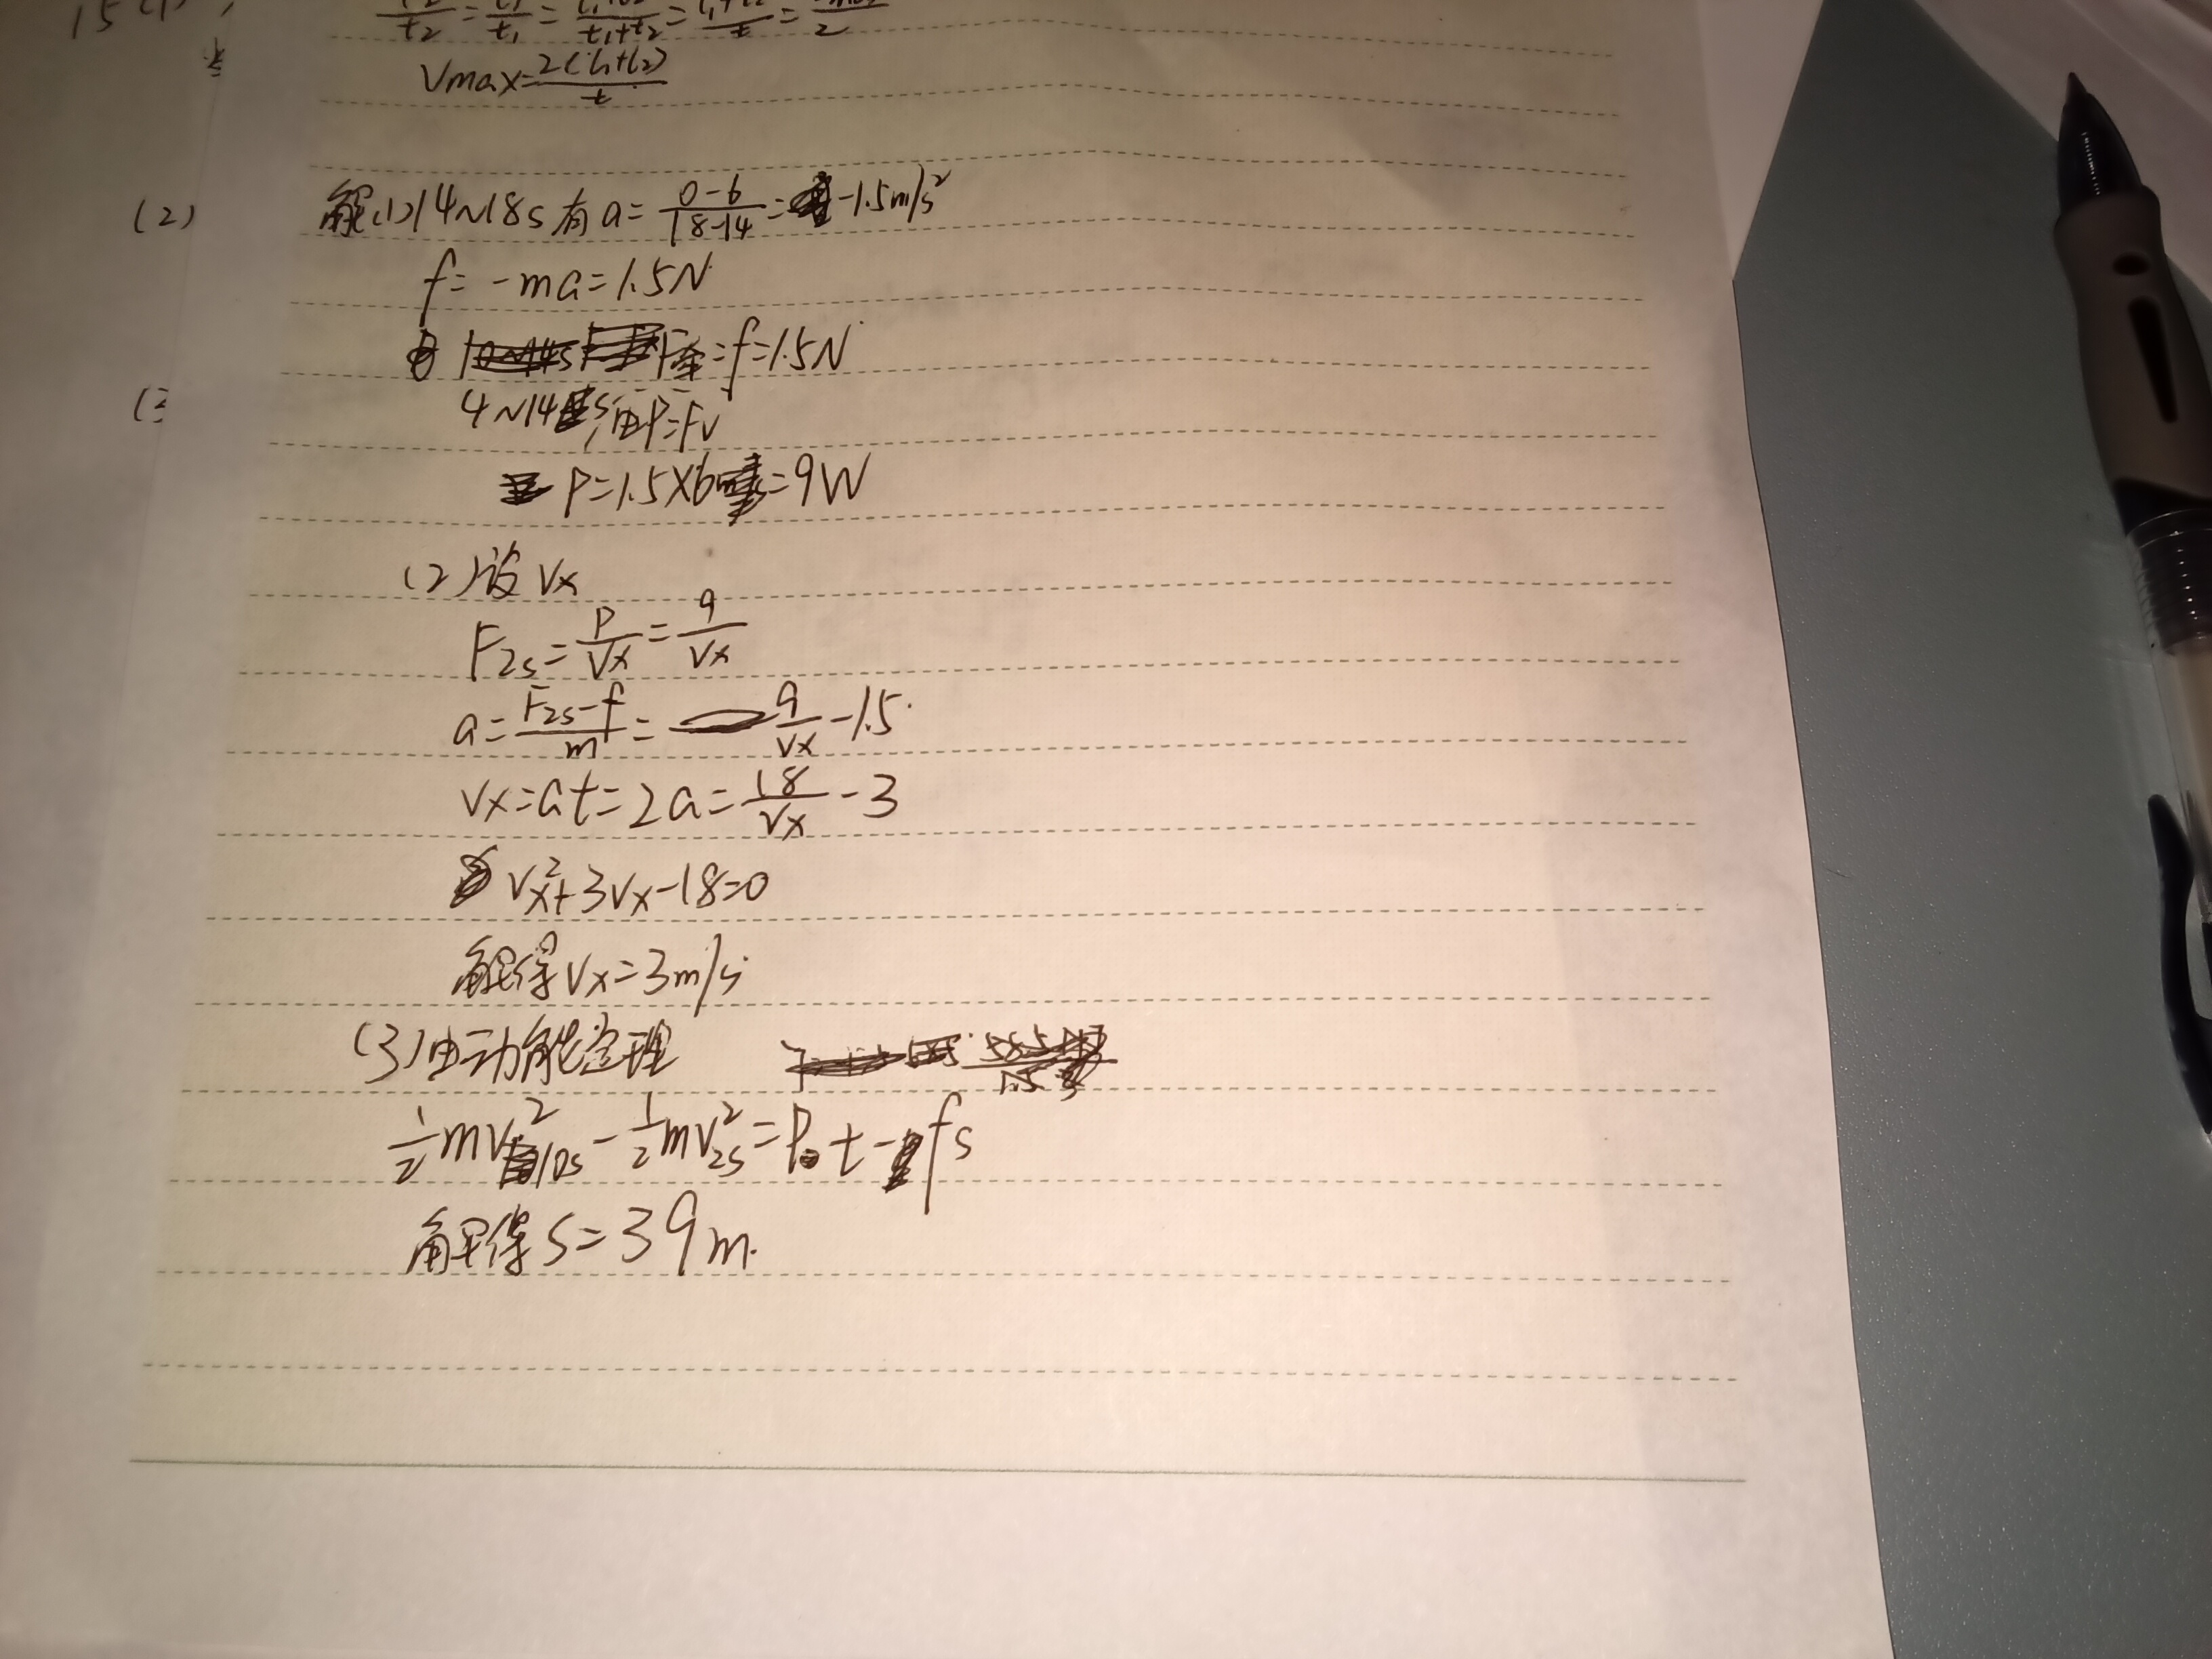 15(1)
Vmax=2(l₁+l₂)/t
(2) 解(1)14~18s有a=(0-6)/(18-14)=-1.5m/s²
f=-ma=1.5N
F牵=f=1.5N
4~14s,由P=Fv
P=1.5×6=9W
(2)设Vx
F2s=P/Vx=9/Vx
a=(F2s-f)/m=9/Vx-1.5
Vx=at=2a=18/Vx-3
Vx²+3Vx-18=0
解得Vx=3m/s
(3)由动能定理
½mv²10s-½mv²2s=P·t-fs
解得S=39m.